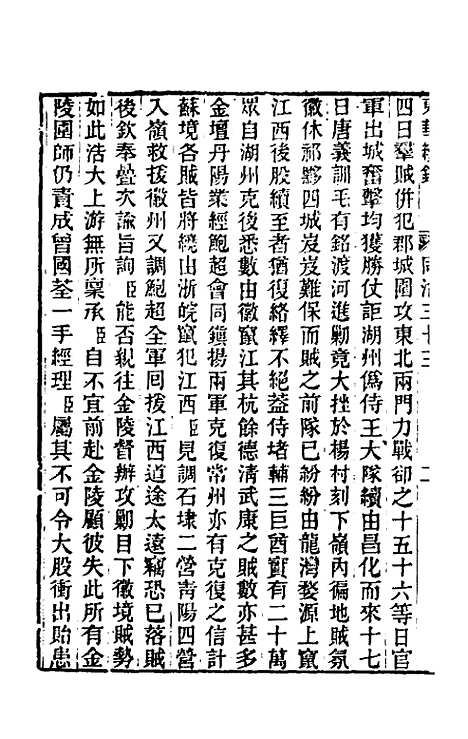 四日羣賊併犯郡城圍攻東北兩門力戰卻之十五十六等日官
軍出城奮擊均獲勝仗詎湖州僞侍王大隊續由昌化而來十七
日唐義訓毛有銘渡河進勦竟大挫於楊村刻下嶺內徧地賊氛
徽休祁黟四城岌岌難保而賊之前隊已紛紛由龍灣婺源上竄
江西後股續至者猶復絡繹不絕蓋侍堵輔三巨酋實有二十萬
眾自湖州克後悉數由徽竄江其杭餘德清武康之賊數亦甚多
金壇丹陽業經鮑超會同鎮揚兩軍克復常州亦有克復之信計
蘇境各賊皆將繞由浙皖竄犯江西臣見調石埭二營青陽四營
入嶺救援徽州又調鮑超全軍回援江西道途太遠竊恐已落賊
後欽奉疊次諭旨詢臣能否親往金陵督辦攻勦目下徽境賊勢
如此浩大上游無所稟承臣自不宜前赴金陵顧彼失此所有金
陵圍師仍責成曾國荃一手經理臣屬其不可令大股衝出貽患